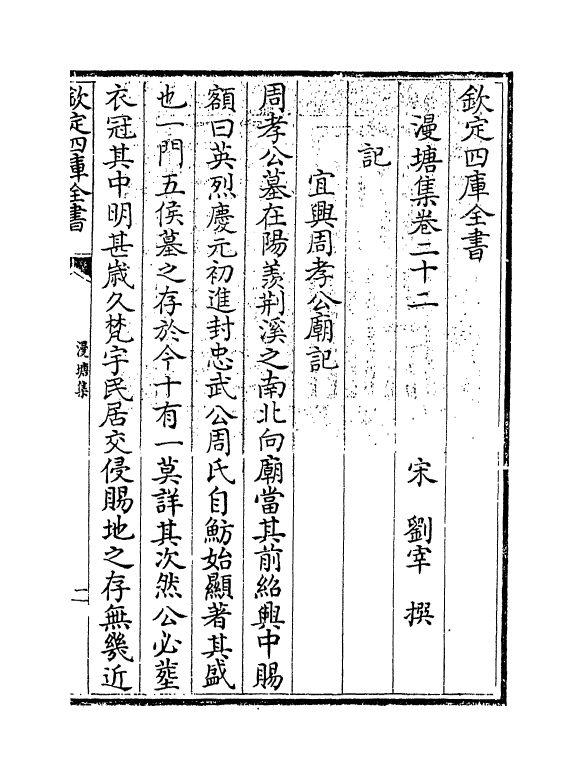 欽定四庫全書
漫塘集卷二十二　宋　劉宰　撰
記
宜興周孝公廟記
周孝公墓在陽羡荆溪之南北向廟當其前紹興中賜
額曰英烈慶元初進封忠武公周氏自魴始顯著其盛
也一門五侯墓之存於今十有一莫詳其次然公必塟
衣冠其中明甚嵗久梵宇民居交侵賜地之存無幾近
欽定四庫全書
漫塘集
二